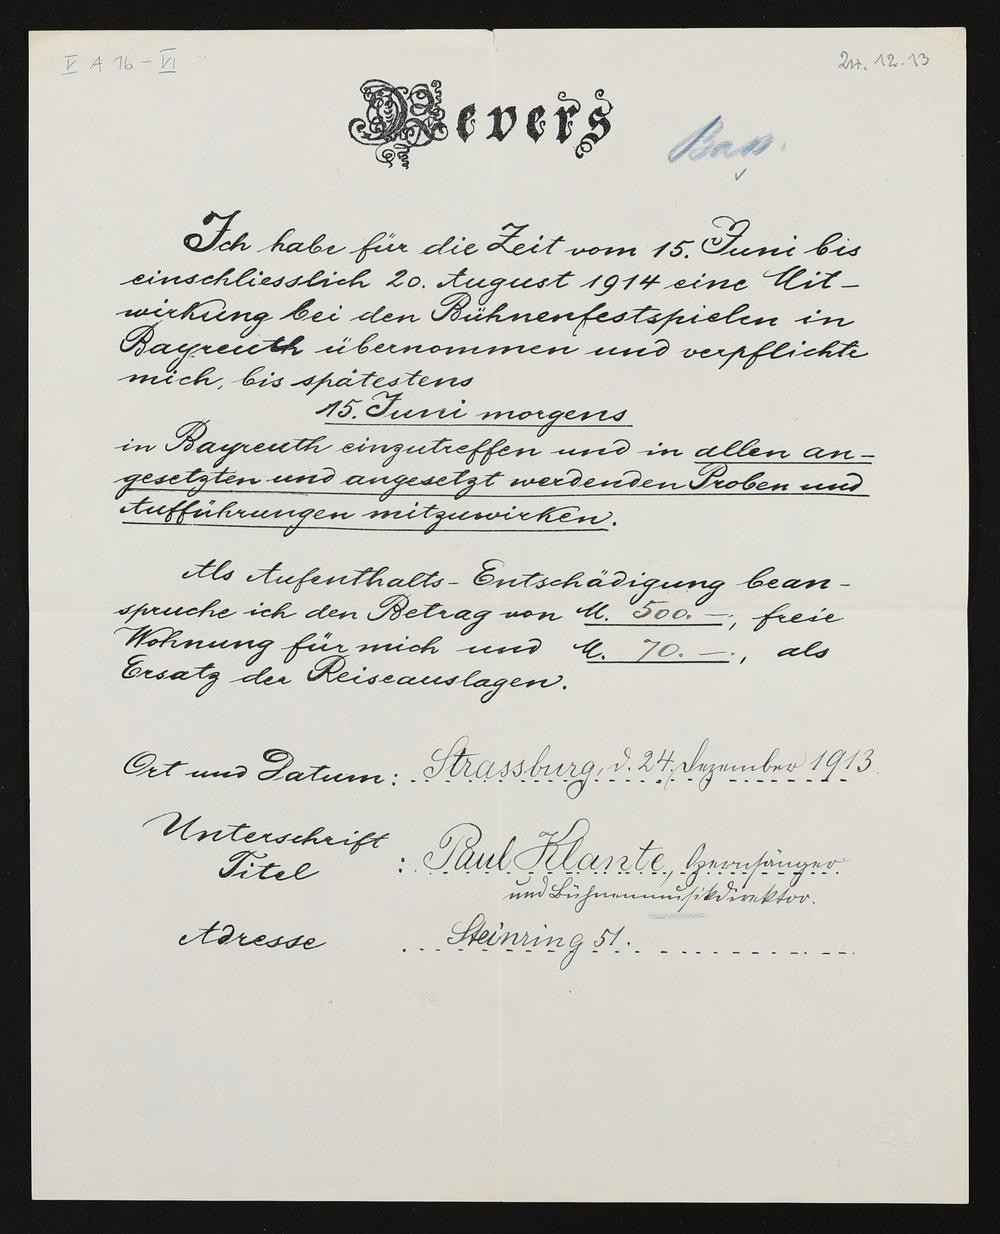 V A 16 - VI
24.12.13
Revers
Bass.
Ich habe für die Zeit vom 15. Juni bis
einschliesslich 20. August 1914 eine Mit-
wirkung bei den Bühnenfestspielen in
Bayreuth übernommen und verpflichte
mich, bis spätestens
15. Juni morgens
in Bayreuth einzutreffen und in allen an-
gesetzten und angesetzt werdenden Proben und
Aufführungen mitzuwirken.
Als Aufenthalts-Entschädigung bean-
spruche ich den Betrag von M. 500.-, freie
Wohnung für mich und M. 70.-, als
Ersatz der Reiseauslagen.
Ort und Datum: Strassburg, d. 24. Dezember 1913
Unterschrift
Titel : Paul Klante, Opernsänger
und Bühnenmusikdirektor.
Adresse Steinring 51.